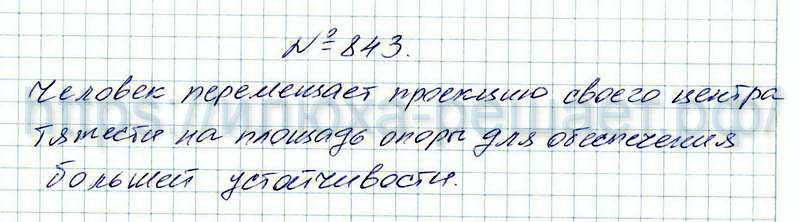 №843.
Человек перемещает проекцию своего центра
тяжести на площадь опоры для обеспечения
большей устойчивости.